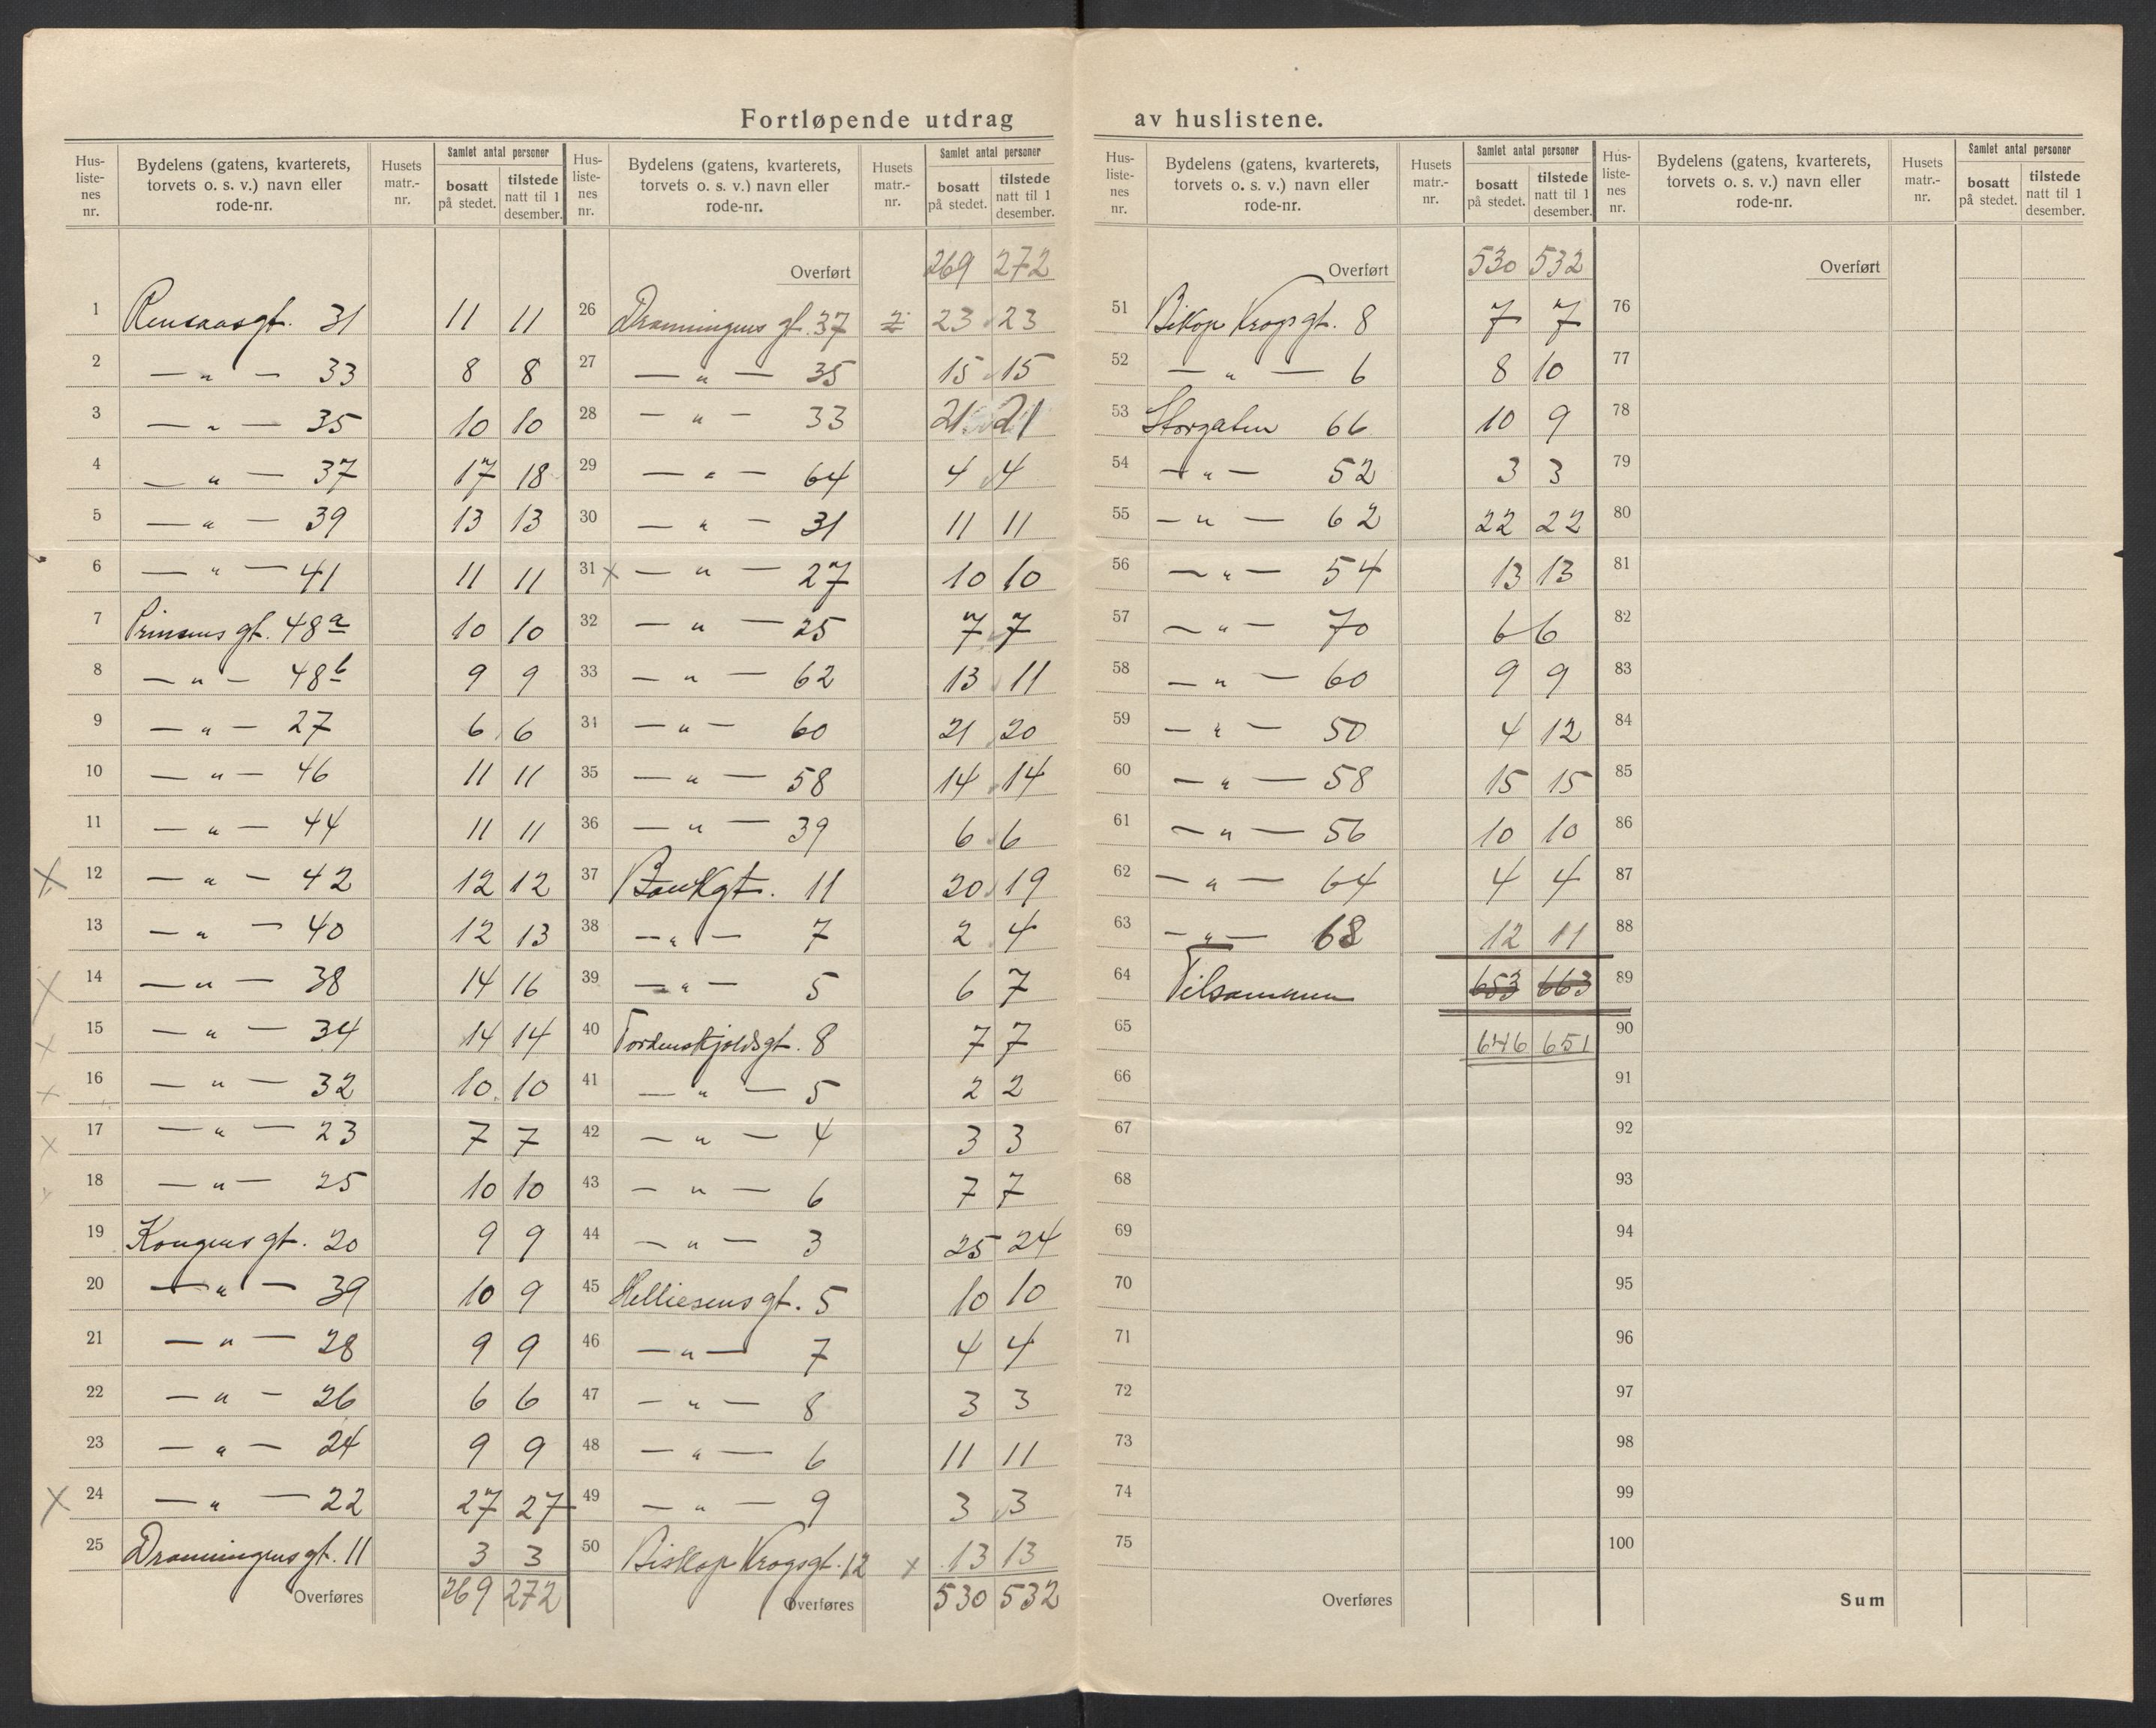 Fortløpende utdrag av huslistene.
Hus-listenes nr. | Bydelens (gatens, kvarterets, torvets o. s. v.) navn eller rode-nr. | Husets matr.-nr. | Samlet antal personer | bosatt på stedet. | tilstede natt til 1 desember.
1 Rensaasgt. 31 11 11
2 — " — 33 8 8
3 — " — 35 10 10
4 — " — 37 17 18
5 — " — 39 13 13
6 — " — 41 11 11
7 Prinsens gt. 48a 10 10
8 — " — 48b 9 9
9 — " — 27 6 6
10 — " — 46 11 11
11 — " — 44 11 11
X 12 — " — 42 12 12
13 — " — 40 12 13
X 14 — " — 38 14 16
X 15 — " — 34 14 14
X 16 — " — 32 10 10
X 17 — " — 23 7 7
x 18 — " — 25 10 10
19 Kongens gt. 20 9 9
20 — " — 39 10 9
21 — " — 28 9 9
22 — " — 26 6 6
23 — " — 24 9 9
X 24 — " — 22 27 27
25 Dronningens gt. 11 3 3
Overføres 269 272
Hus-listenes nr. | Bydelens (gatens, kvarterets, torvets o. s. v.) navn eller rode-nr. | Husets matr.-nr. | Samlet antal personer | bosatt på stedet. | tilstede natt til 1 desember.
Overført 269 272
26 Dronningens gt. 37 23 23
27 — " — 35 15 15
28 — " — 33 21 21
29 — " — 64 4 4
30 — " — 31 11 11
31 x — " — 27 10 10
32 — " — 25 7 7
33 — " — 62 13 11
34 — " — 60 21 20
35 — " — 58 14 14
36 — " — 39 6 6
37 Bankgt. 11 20 19
38 — " — 7 2 4
39 — " — 5 6 7
40 Tordenskjoldsgt. 8 7 7
41 — " — 5 2 2
42 — " — 4 3 3
43 — " — 6 7 7
44 — " — 3 25 24
45 Helliesens gt. 5 10 10
46 — " — 7 4 4
47 — " — 8 3 3
48 — " — 6 11 11
49 — " — 9 3 3
50 Biskop Krogsgt. 12 x 13 13
Overføres 530 532
Hus-listenes nr. | Bydelens (gatens, kvarterets, torvets o. s. v.) navn eller rode-nr. | Husets matr.-nr. | Samlet antal personer | bosatt på stedet. | tilstede natt til 1 desember.
Overført 530 532
51 Bikop Krogsgt. 8 7 7
52 — " — 6 8 10
53 Storgaten 66 10 9
54 — " — 52 3 3
55 — " — 62 22 22
56 — " — 54 13 13
57 — " — 70 6 6
58 — " — 60 9 9
59 — " — 50 4 12
60 — " — 58 15 15
61 — " — 56 10 10
62 — " — 64 4 4
63 — " — 68 12 11
64 Tilsammen 653 663
65 646 651
66
67
68
69
70
71
72
73
74
75
Overføres
Hus-listenes nr. | Bydelens (gatens, kvarterets, torvets o. s. v.) navn eller rode-nr. | Husets matr.-nr. | Samlet antal personer | bosatt på stedet. | tilstede natt til 1 desember.
Overført
76
77
78
79
80
81
82
83
84
85
86
87
88
89
90
91
92
93
94
95
96
97
98
99
100
Sum